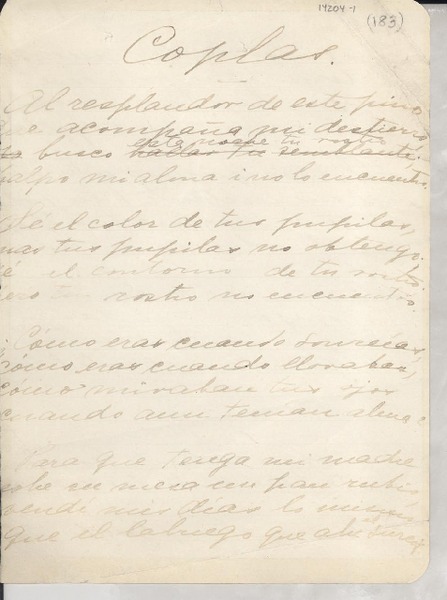 14204-1
(183)
Coplas.
Al resplandor de este pino
que acompaña mi destierro
esta noche tu rostro
yo busco hallar tu semblante
palpo mi alma i no lo encuentro.
Sé el color de tus pupilas,
mas tus pupilas no obtengo.
Sé el contorno de tu rostro
pero tu rostro no encuentro.
¿Cómo eras cuando sonreías,
cómo eras cuando llorabas,
cómo miraban tus ojos
cuando aun tenían alma?
Para que tenga mi madre
sobre su mesa un pan rubio
vendí mis días lo mismo
que el labriego que abre surcos